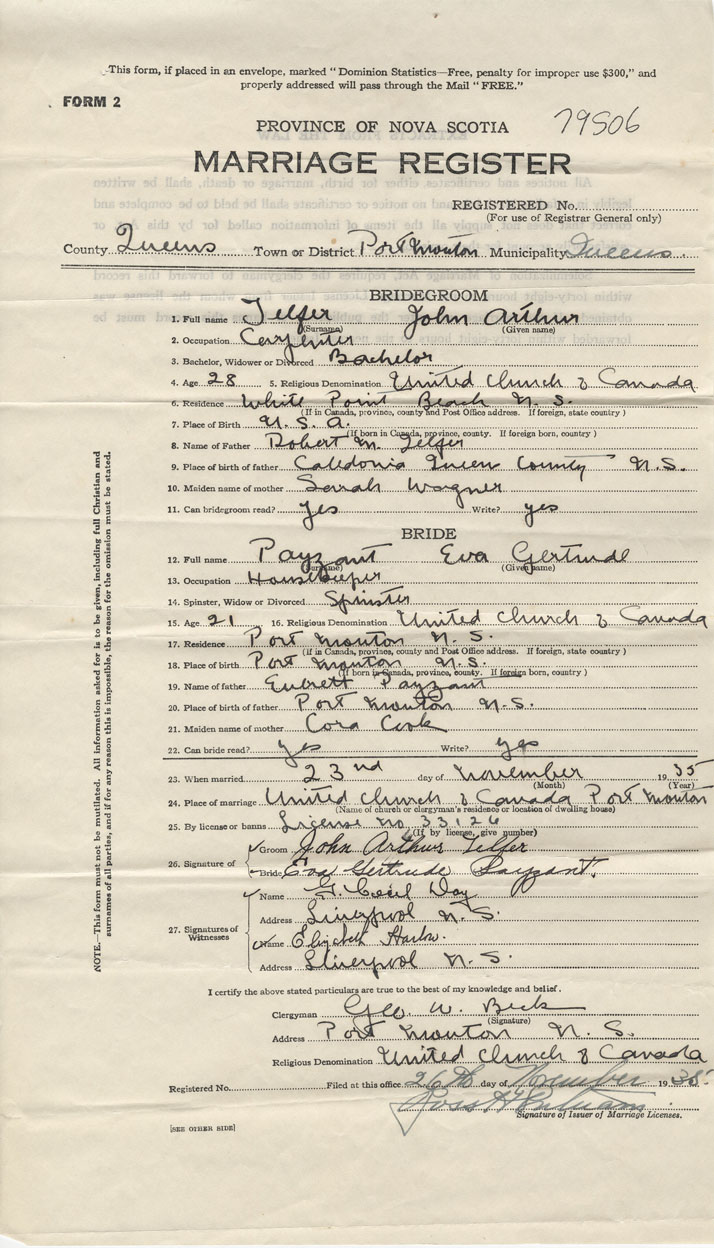 This form, if placed in an envelope, marked "Dominion Statistics—Free, penalty for improper use $300," and
properly addressed will pass through the Mail "FREE."
FORM 2
79506
PROVINCE OF NOVA SCOTIA
MARRIAGE REGISTER
REGISTERED No.
(For use of Registrar General only)
County Queens Town or District Port Mouton Municipality Queens
BRIDEGROOM
1. Full name Telfer John Arthur
(Surname) (Given name)
2. Occupation Carpenter
3. Bachelor, Widower or Divorced Bachelor
4. Age 28 5. Religious Denomination United Church of Canada
6. Residence White Point Beach N. S.
(If in Canada, province, county and Post Office address. If foreign, state country)
7. Place of Birth U. S. A.
(If born in Canada, province, county. If foreign born, country)
8. Name of Father Robert M. Telfer
9. Place of birth of father Caledonia Queen County N. S.
10. Maiden name of mother Sarah Wagner
11. Can bridegroom read? yes Write? yes
BRIDE
12. Full name Payzant Eva Gertrude
(Surname) (Given name)
13. Occupation Housekeeper
14. Spinster, Widow or Divorced Spinster
15. Age 21 16. Religious Denomination United Church of Canada
17. Residence Port Mouton N. S.
(If in Canada, province, county and Post Office address. If foreign, state country)
18. Place of birth Port Mouton N. S.
(If born in Canada, province, county. If foreign born, country)
19. Name of father Everett Payzant
20. Place of birth of father Port Mouton N. S.
21. Maiden name of mother Cora Cook
22. Can bride read? yes Write? yes
23. When married 23nd day of November 1935
(Month) (Year)
24. Place of marriage United Church of Canada Port Mouton
(Name of church or clergyman's residence or location of dwelling house)
25. By license or banns License no 33126
(If by license, give number)
26. Signature of
Groom John Arthur Telfer
Bride Eva Gertrude Payzant.
27. Signatures of Witnesses
Name G. Cecil Day
Address Liverpool N. S.
Name Elizabeth Harlow.
Address Liverpool N. S.
I certify the above stated particulars are true to the best of my knowledge and belief.
Clergyman Geo. W. Beck
(Signature)
Address Port Mouton N. S.
Religious Denomination United Church of Canada
Registered No. Filed at this office 26th day of November 1935
Signature of Issuer of Marriage Licenses.
[SEE OTHER SIDE]
NOTE.—This form must not be mutilated. All information asked for is to be given, including full Christian and
surnames of all parties, and if for any reason this is impossible, the reason for the omission must be stated.